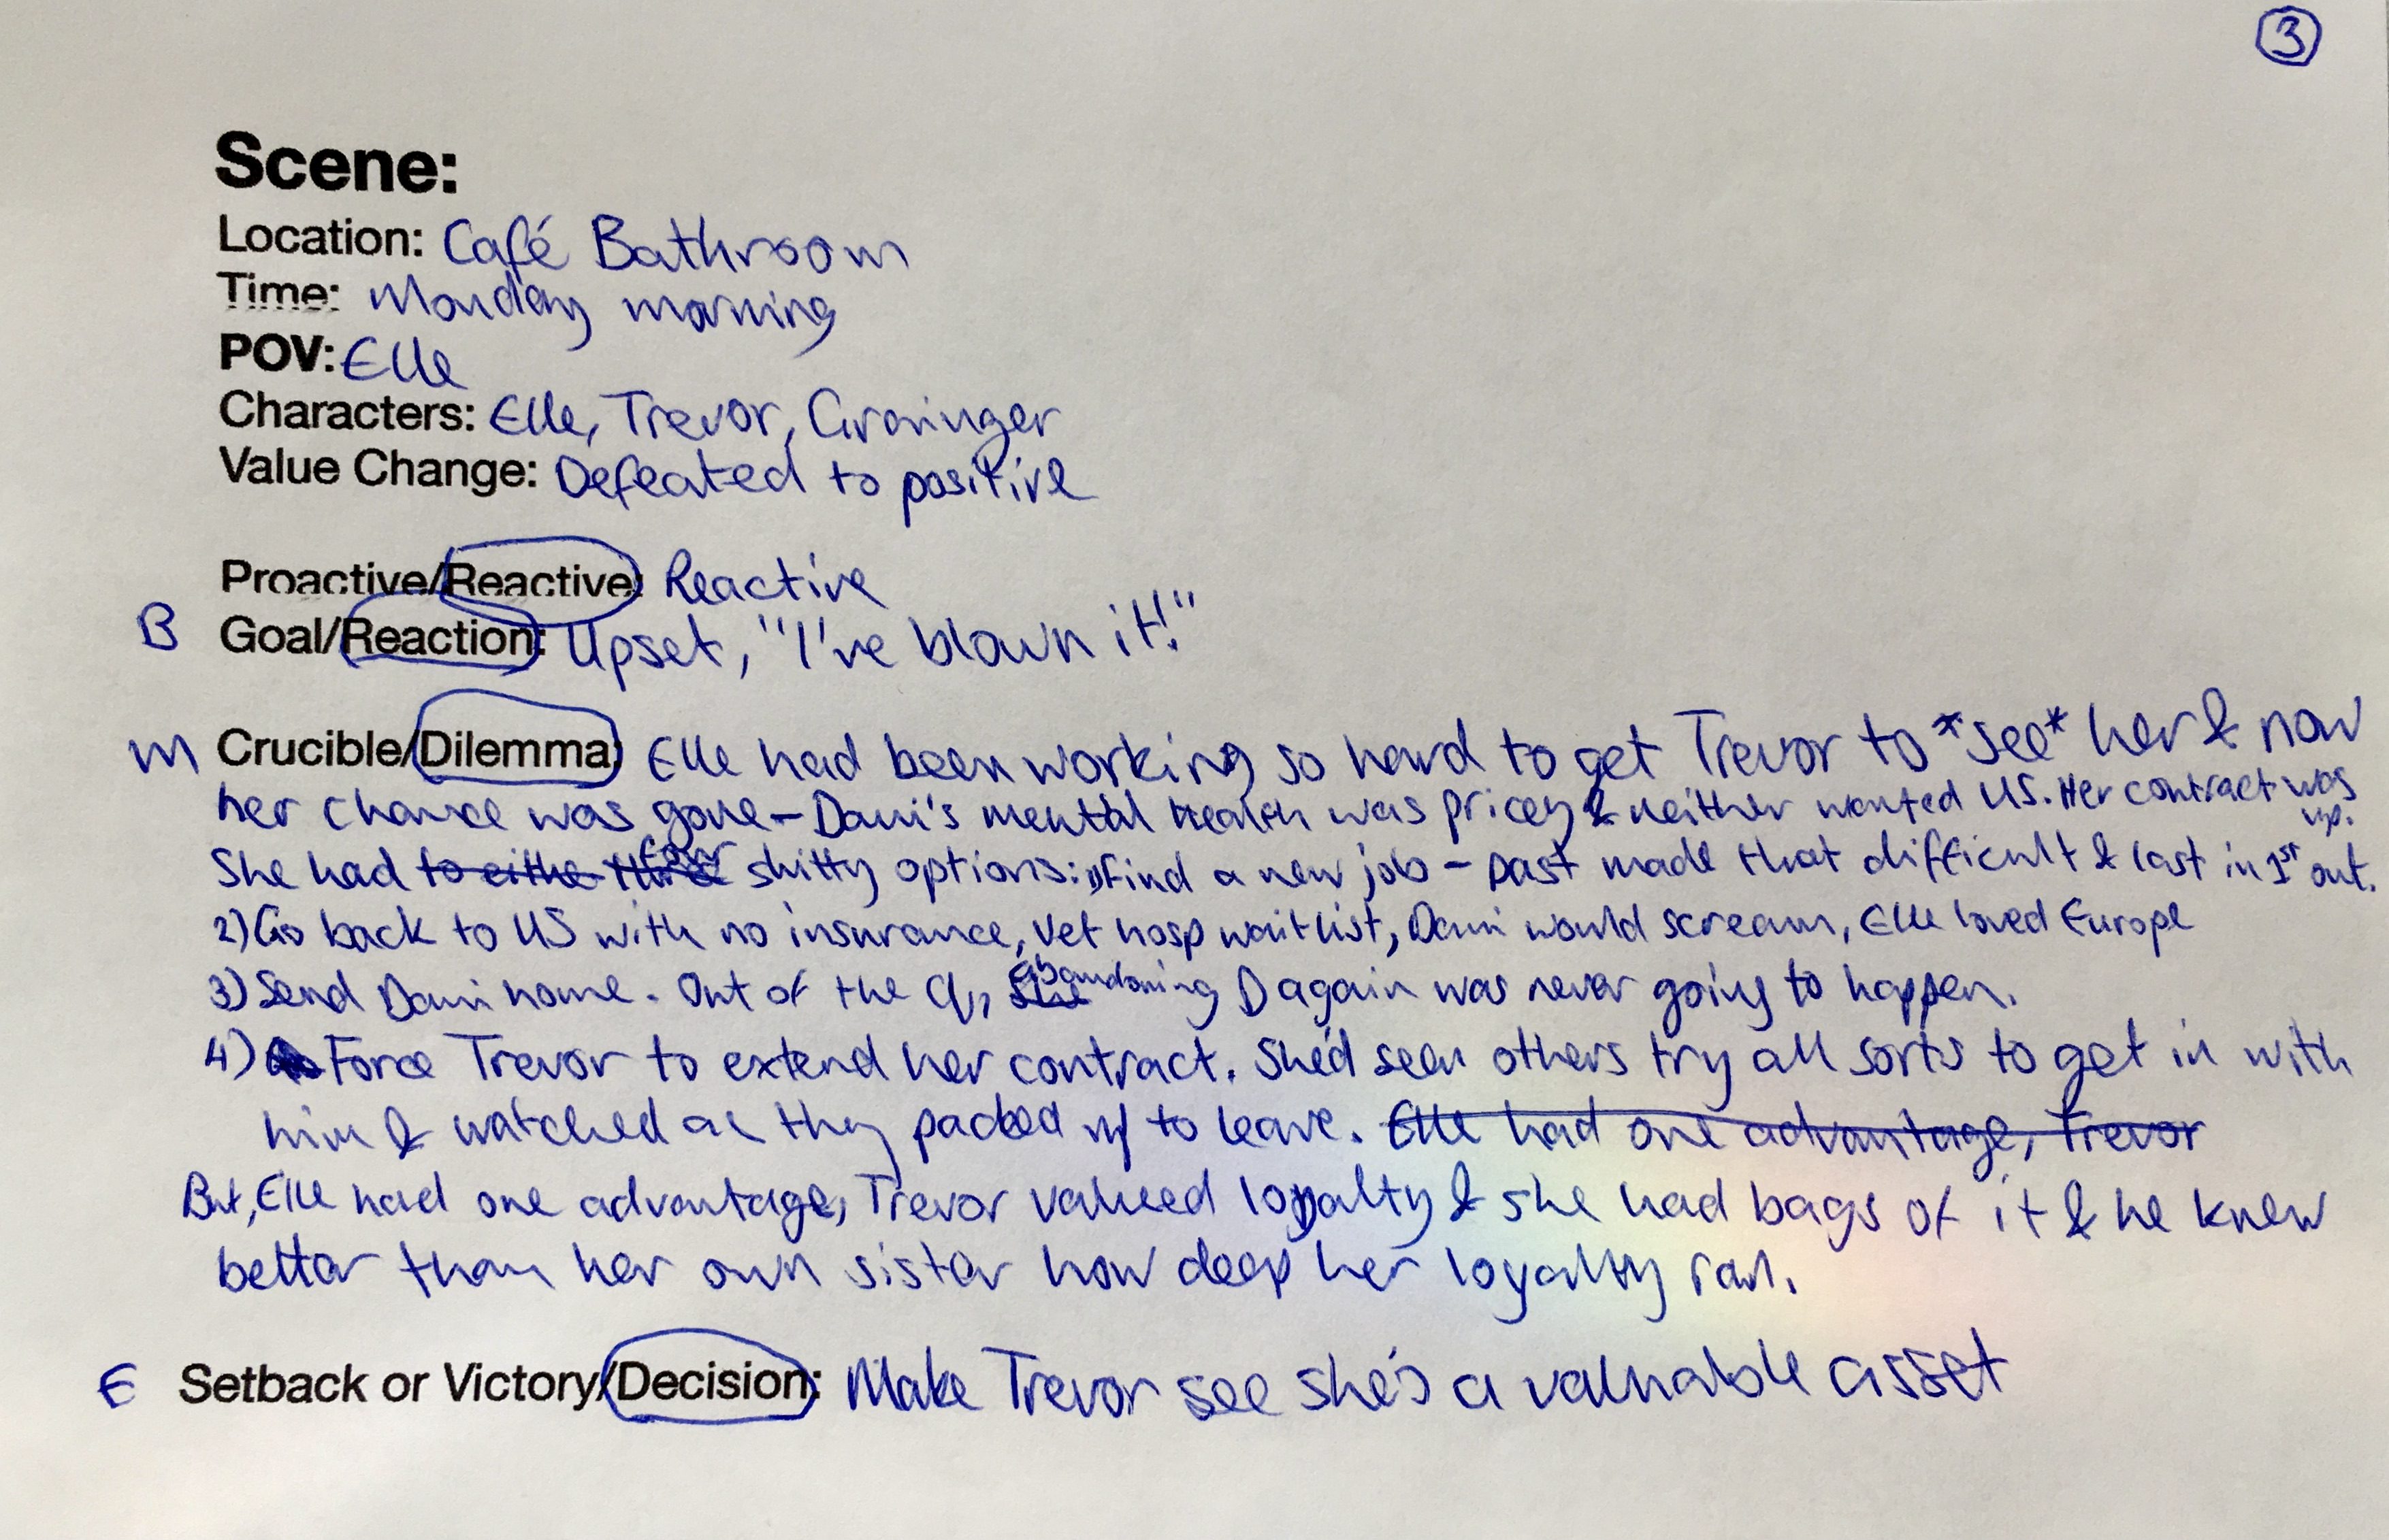 3
Scene:
Location: Café Bathroom
Time: Monday morning
POV: Elle
Characters: Elle, Trevor, Grainger
Value Change: Defeated to positive
Proactive/Reactive: Reactive
B Goal/Reaction: Upset, "I've blown it!"
M Crucible/Dilemma: Elle had been working so hard to get Trevor to *see* her & now
her chance was gone - Dani's mental health was pricey & neither wanted US. Her contract was up.
She had to eithe three four shitty options: 1) Find a new job - past made that difficult & last in 1st out.
2) Go back to US with no insurance, vet hosp waitlist, Dani would scream, Elle loved Europe
3) Send Dani home. Out of the Q, She abandoning D again was never going to happen.
4) Force Trevor to extend her contract. She'd seen others try all sorts to get in with
him & watched as they packed up to leave. Elle had one advantage, Trevor
But, Elle had one advantage, Trevor valued loyalty & she had bags of it & he knew
better than her own sister how deep her loyalty ran.
E Setback or Victory/Decision: Make Trevor see she's a valuable asset